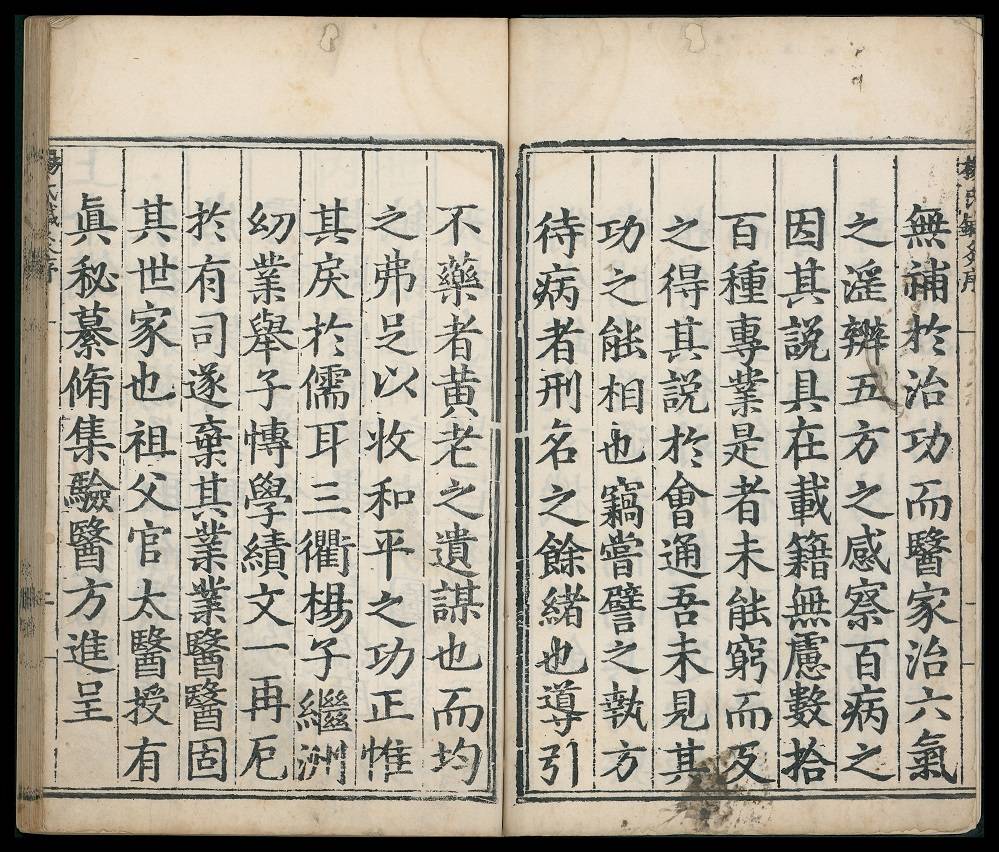 無補於治功而醫家治六氣
之淫辨五方之感察百病之
因其説具在載籍無慮數拾
百種專業是者未能窮而反
之得其説於會通吾未見其
功之能相也竊嘗譬之執方
待病者刑名之餘緒也導引
不藥者黄老之遺謀也而均
之弗足以收和平之功正惟
其戾於儒耳三衢楊子繼洲
幼業舉子慱學績文一再厄
於有司遂棄其業業醫醫固
其世家也祖父官太醫授有
眞秘纂脩集驗醫方進呈